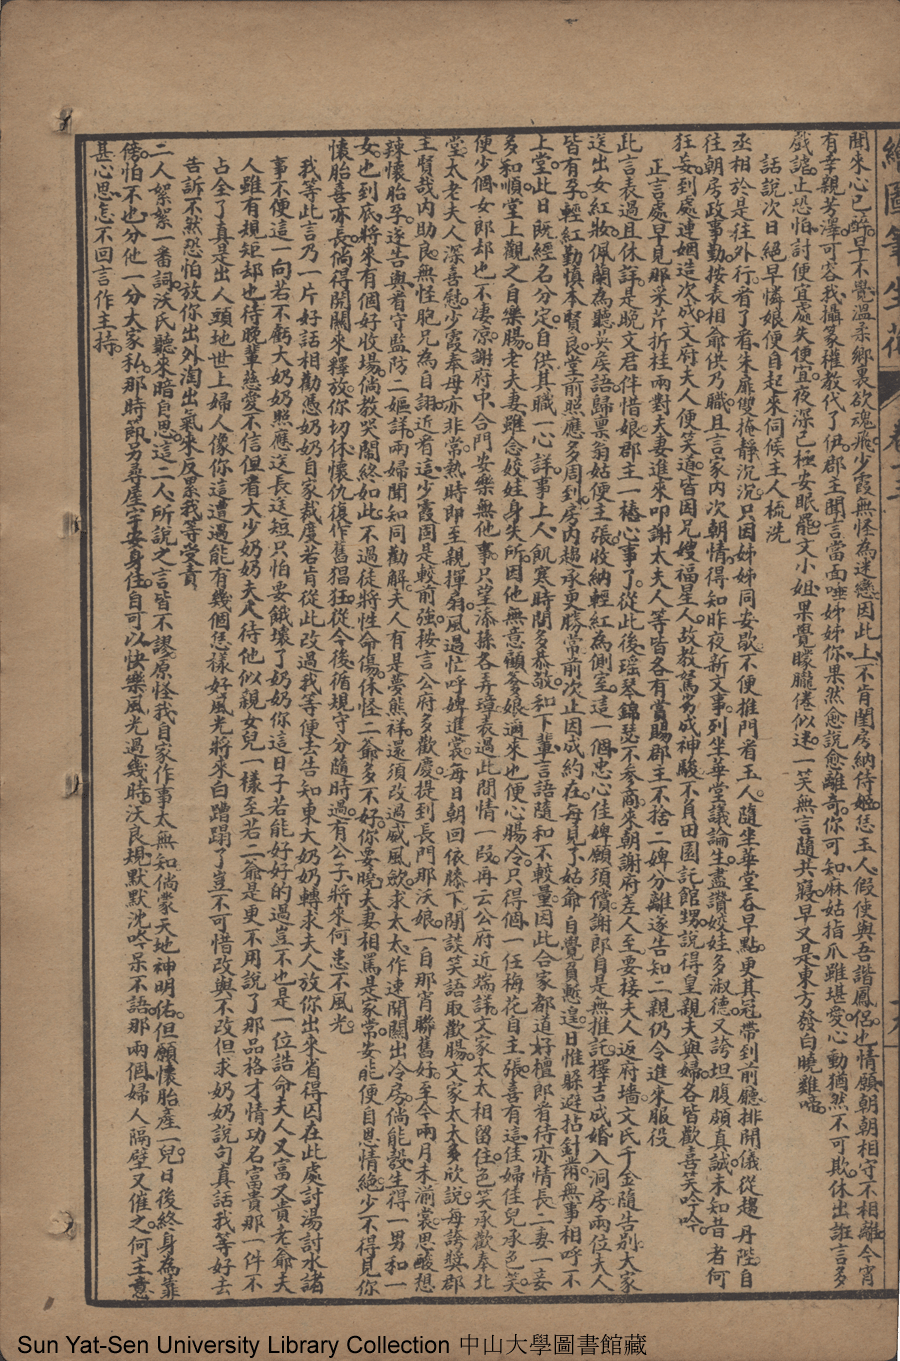 繪圖筆生花 卷十三
聞來心已醉早不覺溫柔鄉裏欲魂飛少霞無怪為迷戀因此上不肯閨房納侍姬恁玉人假使與吾諧鳳侶也情願朝朝相守不相離今宵
有幸親芳澤可容我攝篆權教代了伊郡主聞言當面唾姊姊你果然愈說愈離奇你可知麻姑指爪雖堪愛心動猶然不可欺休出誑言多
戲謔止恐怕討便宜處失便宜夜深已極安眠罷文小姐果覺矇矓倦似迷一笑無言隨共寢早又是東方發白曉雞啼
話說次日絕早憐娘便自起來伺候主人梳洗
丞相於是往外行看了看朱扉雙掩靜沉沉只因姊姊同安歇不便推門看玉人隨坐華堂吞早點更其冠帶到前廳排開儀從趨丹陛自
往朝房政事勤按表相爺供乃職且言家内次朝情得知昨夜新文事列坐華堂議論生盡讚姣娃多淑德又誇坦腹頗真誠未知昔者何
狂妄到處連姻這次成文府夫人便笑道皆因兄嫂福星人故教駑劣成神駿不負田園託館甥說得皇親夫與婦各皆歡喜笑吟吟
正言處早見那采芹折桂兩對夫妻進來叩謝太夫人等皆各有賞賜郡主不捨二婢分離遂告知二親仍令進來服役
此言表過且休詳是晚文君伴惜娘郡主一樁心事了從此後瑶琴錦瑟不參商來朝謝府差人至要接夫人返府墻文氏千金隨告别大家
送出女紅妝佩蘭為聽吳矦語歸稟翁姑便主張收納輕紅為側室這一個忠心佳婢願須償謝郎自是無推託擇吉成婚入洞房兩位夫人
皆有孕輕紅勤慎本賢良堂前照應多周到房内趨承更勝常前次止因成約在每見了姑爺自覺負慙遑日惟躲避拈針黹無事相呼不
上堂此日既經名分定自供其職一心詳事上人飢寒時間多恭敬和下輩言語隨和不較量因此合家都道好檀郎看待亦情長二妻一妾
多和順堂上觀之自樂腸老夫妻雖念姣娃身失所因他無意顧爹娘邇來也便心腸冷只得個一任梅花自主張喜有這佳婦佳兒承色笑
便少個女郎却也不凄凉謝府中合門安樂無他事只望添孫各弄璋表過此間情一段再云公府近端詳文家太太相留住色笑承歡奉北
堂太老夫人深喜慰少霞奉母亦非常熱時即至親揮扇風過忙呼婢進裳每日朝回依膝下閒談笑語取歡腸文家太太多欣說每誇奬郡
主賢哉内助良無怪胞兄為自詡近看這少霞固是較前強按言公府多歡慶提到長門那沃娘一自那宵聯舊好至今兩月未湔裳思酸想
辣懷胎孕遂告與看守監防二嫗詳兩婦聞知同勸解夫人有是夢熊祥還須改過威風歛求太太作速開關出冷房倘能彀生得一男和一
女也到底將來有個好收場倘教哭鬧終如此不過徒將性命傷休怪二爺多不好你要曉夫妻相罵是家常安能便自恩情絕少不得見你
懷胎喜亦長倘得開關來釋放你切休懷仇復作舊猖狂從今後循規守分隨時過有公子將來何患不風光
我等此言乃一片好話相勸憑奶奶自家裁度若肯從此改過我等便去告知東大奶奶轉求夫人放你出來省得囚在此處討湯討水諸
事不便這一向若不虧大奶奶照應送長送短只怕要餓壞了奶奶你這日子若能好好的過豈不也是一位誥命夫人又富又貴老爺夫
人雖有規矩却也待晚輩慈愛不信但看大少奶奶夫人待他似親女兒一樣至若二爺是更不用說了那品格才情功名富貴那一件不
占全了真是出人頭地世上婦人像你這遭遇能有幾個恁樣好風光將來白蹧蹋了豈不可惜改與不改但求奶奶說句真話我等好去
告訴不然恐怕放你出外淘出氣來反累我等受責
二人絮絮一番詞沃氏聽來暗自思這二人所說之言皆不謬原怪我自家作事太無知倘蒙天地神明佑但願懷胎產一兒日後終身為靠
傍怕不也分他一分大家私那時節另尋屋宇安身住自可以快樂風光過幾時沃良規默默沈吟呆不語那兩個婦人隔壁又催之何主意
甚心思怎不回言作主持
Sun Yat-Sen University Library Collection 中山大學圖書館藏